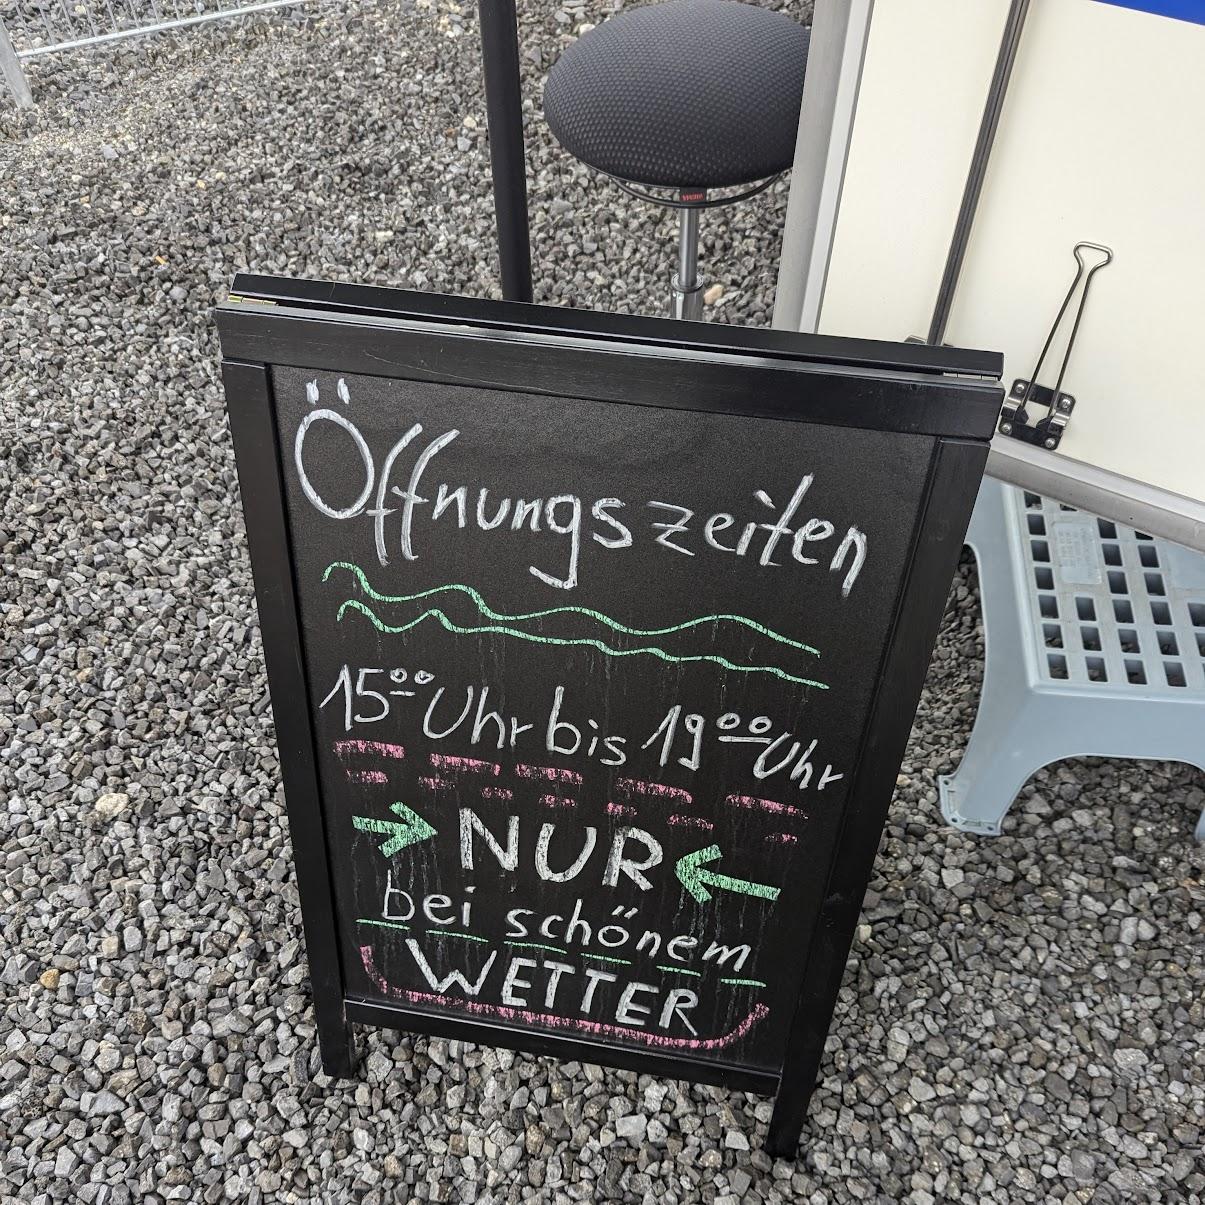 Öffnungszeiten
15⁰⁰ Uhr bis 19⁰⁰ Uhr
NUR
bei schönem
WETTER